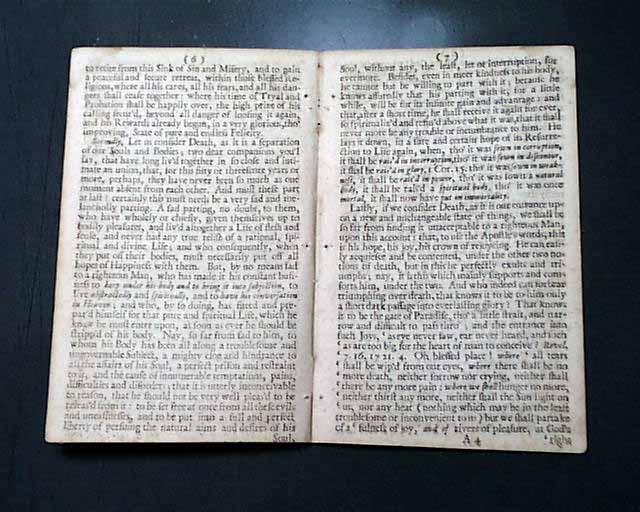 ( 6 )
to retire from this Sink of Sin and Misery, and to gain
a peaceful and secure retreat, within those blessed Re-
gions, where all his cares, all his fears, and all his dan-
gers shall cease together: where his time of Tryal and
Probation shall be happily over, the high prize of his
calling secur'd, beyond all danger of loosing it again,
and his Rewards already begun, in a very glorious, tho'
improving, State of pure and endless Felicity.
Secondly, Let us consider Death, as it is a separation
of our Souls and Bodies; two dear companions you'll
say, that have long liv'd together in so close and inti-
mate an union, that, for this fifty or threescore years or
more, perhaps, they have never been so much as one
moment absent from each other. And must these part
at last? certainly this must needs be a very sad and me-
lancholly parting. A sad parting, no doubt, to them,
who have wholely or chiefly, given themselves up to
bodily pleasures, and liv'd altogether a Life of flesh and
sense, and never had any true relish of a rational, spi-
ritual and divine Life; and who consequently, when
they put off their bodies, must necessarily put off all
hopes of Happiness with them. But, by no means sad
to a righteous Man, who has made it his constant busi-
ness to keep under his body and to bring it into subjection, to
live abstractedly and spiritually, and to have his conversation
in Heaven; and who, by so doing, has fitted and pre-
par'd himself for that pure and spiritual Life, which he
knew he must enter upon, as soon as ever he should be
stripp'd of his body. Nay, so far from sad to him, to
whom his Body has been all along a troublesome and
ungovernable Subject, a mighty clog and hindrance to
all the affairs of his Soul, a perfect prison and restraint
to it, and the cause of innumerable temptations, pains,
difficulties and disorders; that it is utterly inconceivable
to reason, that he should not be very well pleas'd to be
releas'd from it: to be set free at once from all these evils
and uneasinesses, and to be put into a full and perfect
liberty of persuing the natural aims and desires of his
Soul,
( 7 )
Soul, without any, the least, let or interruption, for
evermore. Besides, even in meer kindness to his body,
he cannot but be willing to part with it; because he
knows assuredly that his parting with it, for a little
while, will be for its infinite gain and advantage; and
that, after a short time, he shall receive it again for ever,
so spiritualiz'd and refin'd above what it was, that it shall
never more be any trouble or incumbrance to him. He
lays it down, in a sure and certain hope of its Resurre-
ction to Life again, when, tho' it was sown in corruption,
it shall be rais'd in incorruption, tho' it was sown in dishonour,
it shall be rais'd in glory, 1 Cor. 15. tho' it was sown in weak-
ness, it shall be rais'd in power, tho' it was sown a natural
body, it shall be rais'd a spiritual body, tho' it was once
mortal, it shall now have put on immortality.
Lastly, if we consider Death, as it is our entrance up-
on a new and unchangeable state of things, we shall be
so far from finding it unacceptable to a righteous Man,
upon this account; that, to use the Apostle's words, this
is his hope, his joy, his crown of rejoycing. He can easi-
ly acquiesce and be contented, under the other two no-
tions of death, but in this he perfectly exults and tri-
umphs; nay, it is this which mainly supports and com-
forts him, under the two. And who indeed can forbear
triumphing over death, that knows it to be to him only
a short dark passage into everlasting glory? That knows
it to be the gate of Paradise, tho' a little strait, and nar-
row and difficult to pass thro'; and the entrance into
such Joys, ' as eye never saw, ear never heard, and such
' as are too big for the heart of man to conceive? Revel.
' 7. 16, 17. 21. 4. Oh blessed place! where ' all tears
' shall be wip'd from our eyes, where there shall be no
' more death, neither sorrow nor crying, neither shall
' there be any more pain; where we shall hunger no more,
' neither thirst any more, neither shall the Sun light on
' us, nor any heat (nothing which may be in the least
' troublesome or inconvenient to us) but we shall partake
of a ' fulness of joy, and of rivers of pleasure, at God's
A 4
' right